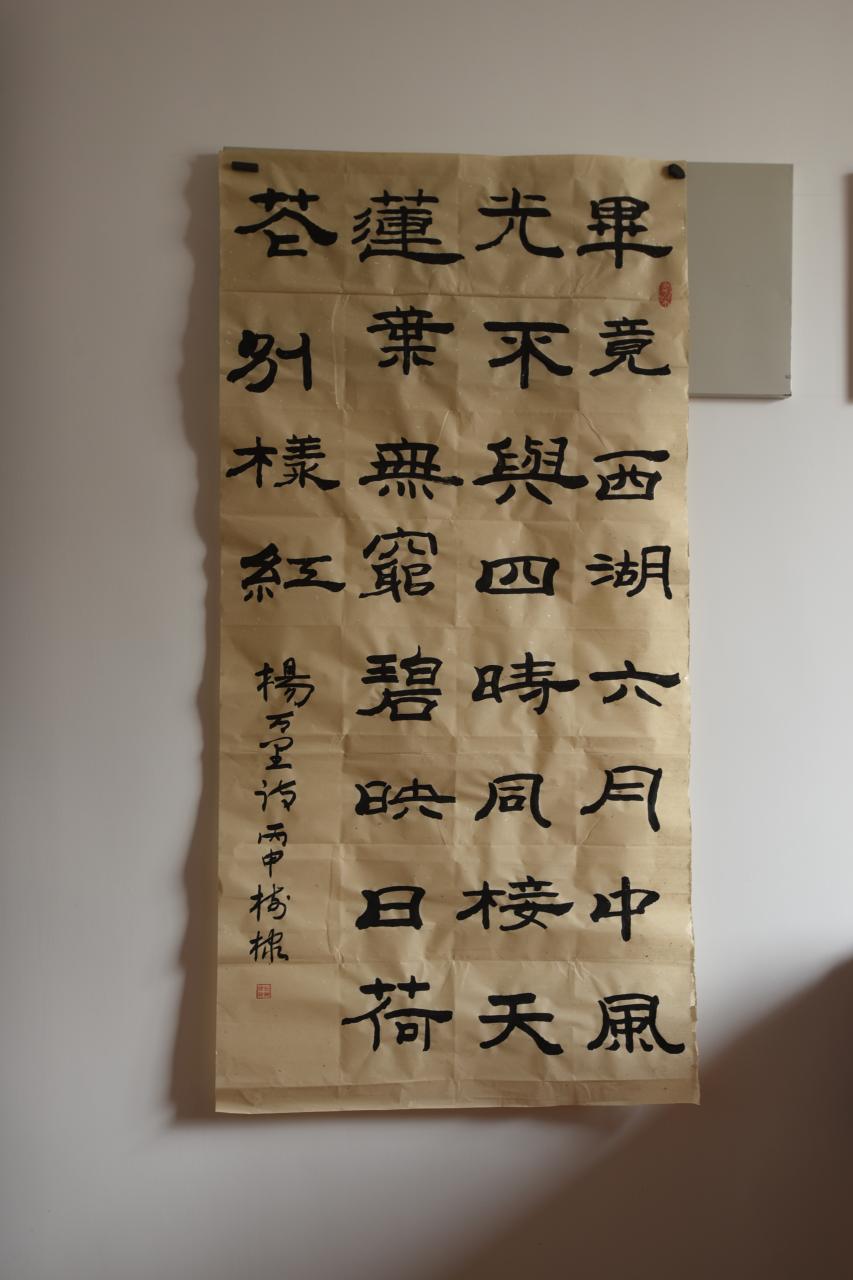 畢竟西湖六月中風
光不與四時同接天
蓮葉無窮碧映日荷
花別樣紅
楊万里诗丙申